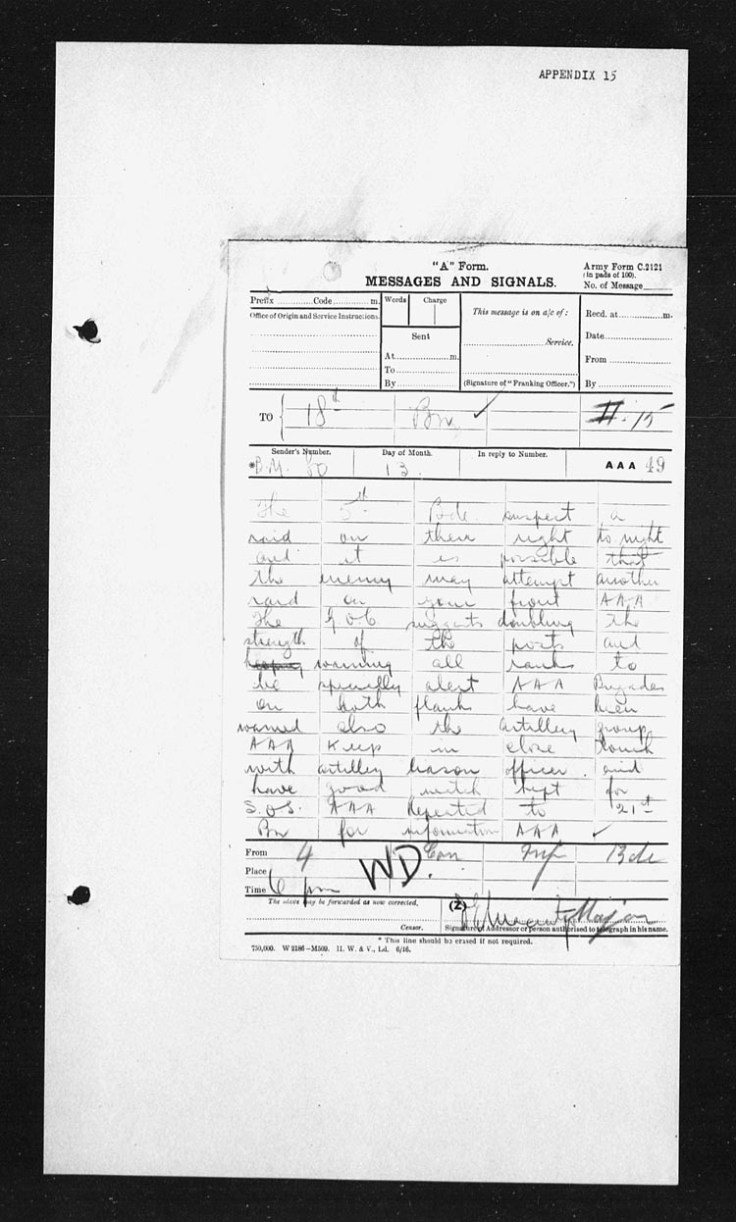 APPENDIX 15
"A" Form.
Army Form C.2121
(in pads of 100).
MESSAGES AND SIGNALS.
No. of Message
Prefix Code m.
Words Charge
This message is on a/c of :
Recd. at m.
Office of Origin and Service Instructions.
Sent
Service.
Date
At m.
From
To
By
(Signature of "Franking Officer.")
By
TO 18th Bn ✓ II. 15
Sender's Number. Day of Month. In reply to Number. AAA 49
*B.M. 80 13.
The 5th Bde suspect a
raid on their right to night
and it is possible that
the enemy may attempt another
raid on your front AAA
The G.O.C suggests doubling the
strength of the posts and
keeping warning all ranks to
be specially alert AAA Brigades
on both flanks have been
warned also the artillery group
AAA Keep in close touch
with artillery liason officer and
have good watch kept for
S.O.S. AAA Repeated to 21st
Bn for information AAA ✓
From 4 Can Inf Bde
WD.
Place
Time 6 pm
The above may be forwarded as now corrected. (Z)
Major
Censor. Signature of Addressor or person authorised to telegraph in his name.
* This line should be erased if not required.
750,000. W 2186—M509. H. W. & V., Ld. 6/16.